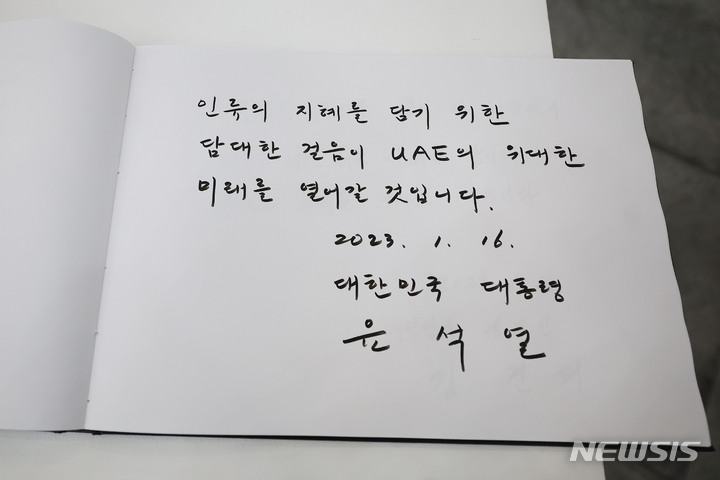 인류의 지혜를 담기 위한
담대한 걸음이 UAE의 위대한
미래를 열어갈 것입니다.
2023. 1. 16.
대한민국 대통령
윤석열
NEWSIS